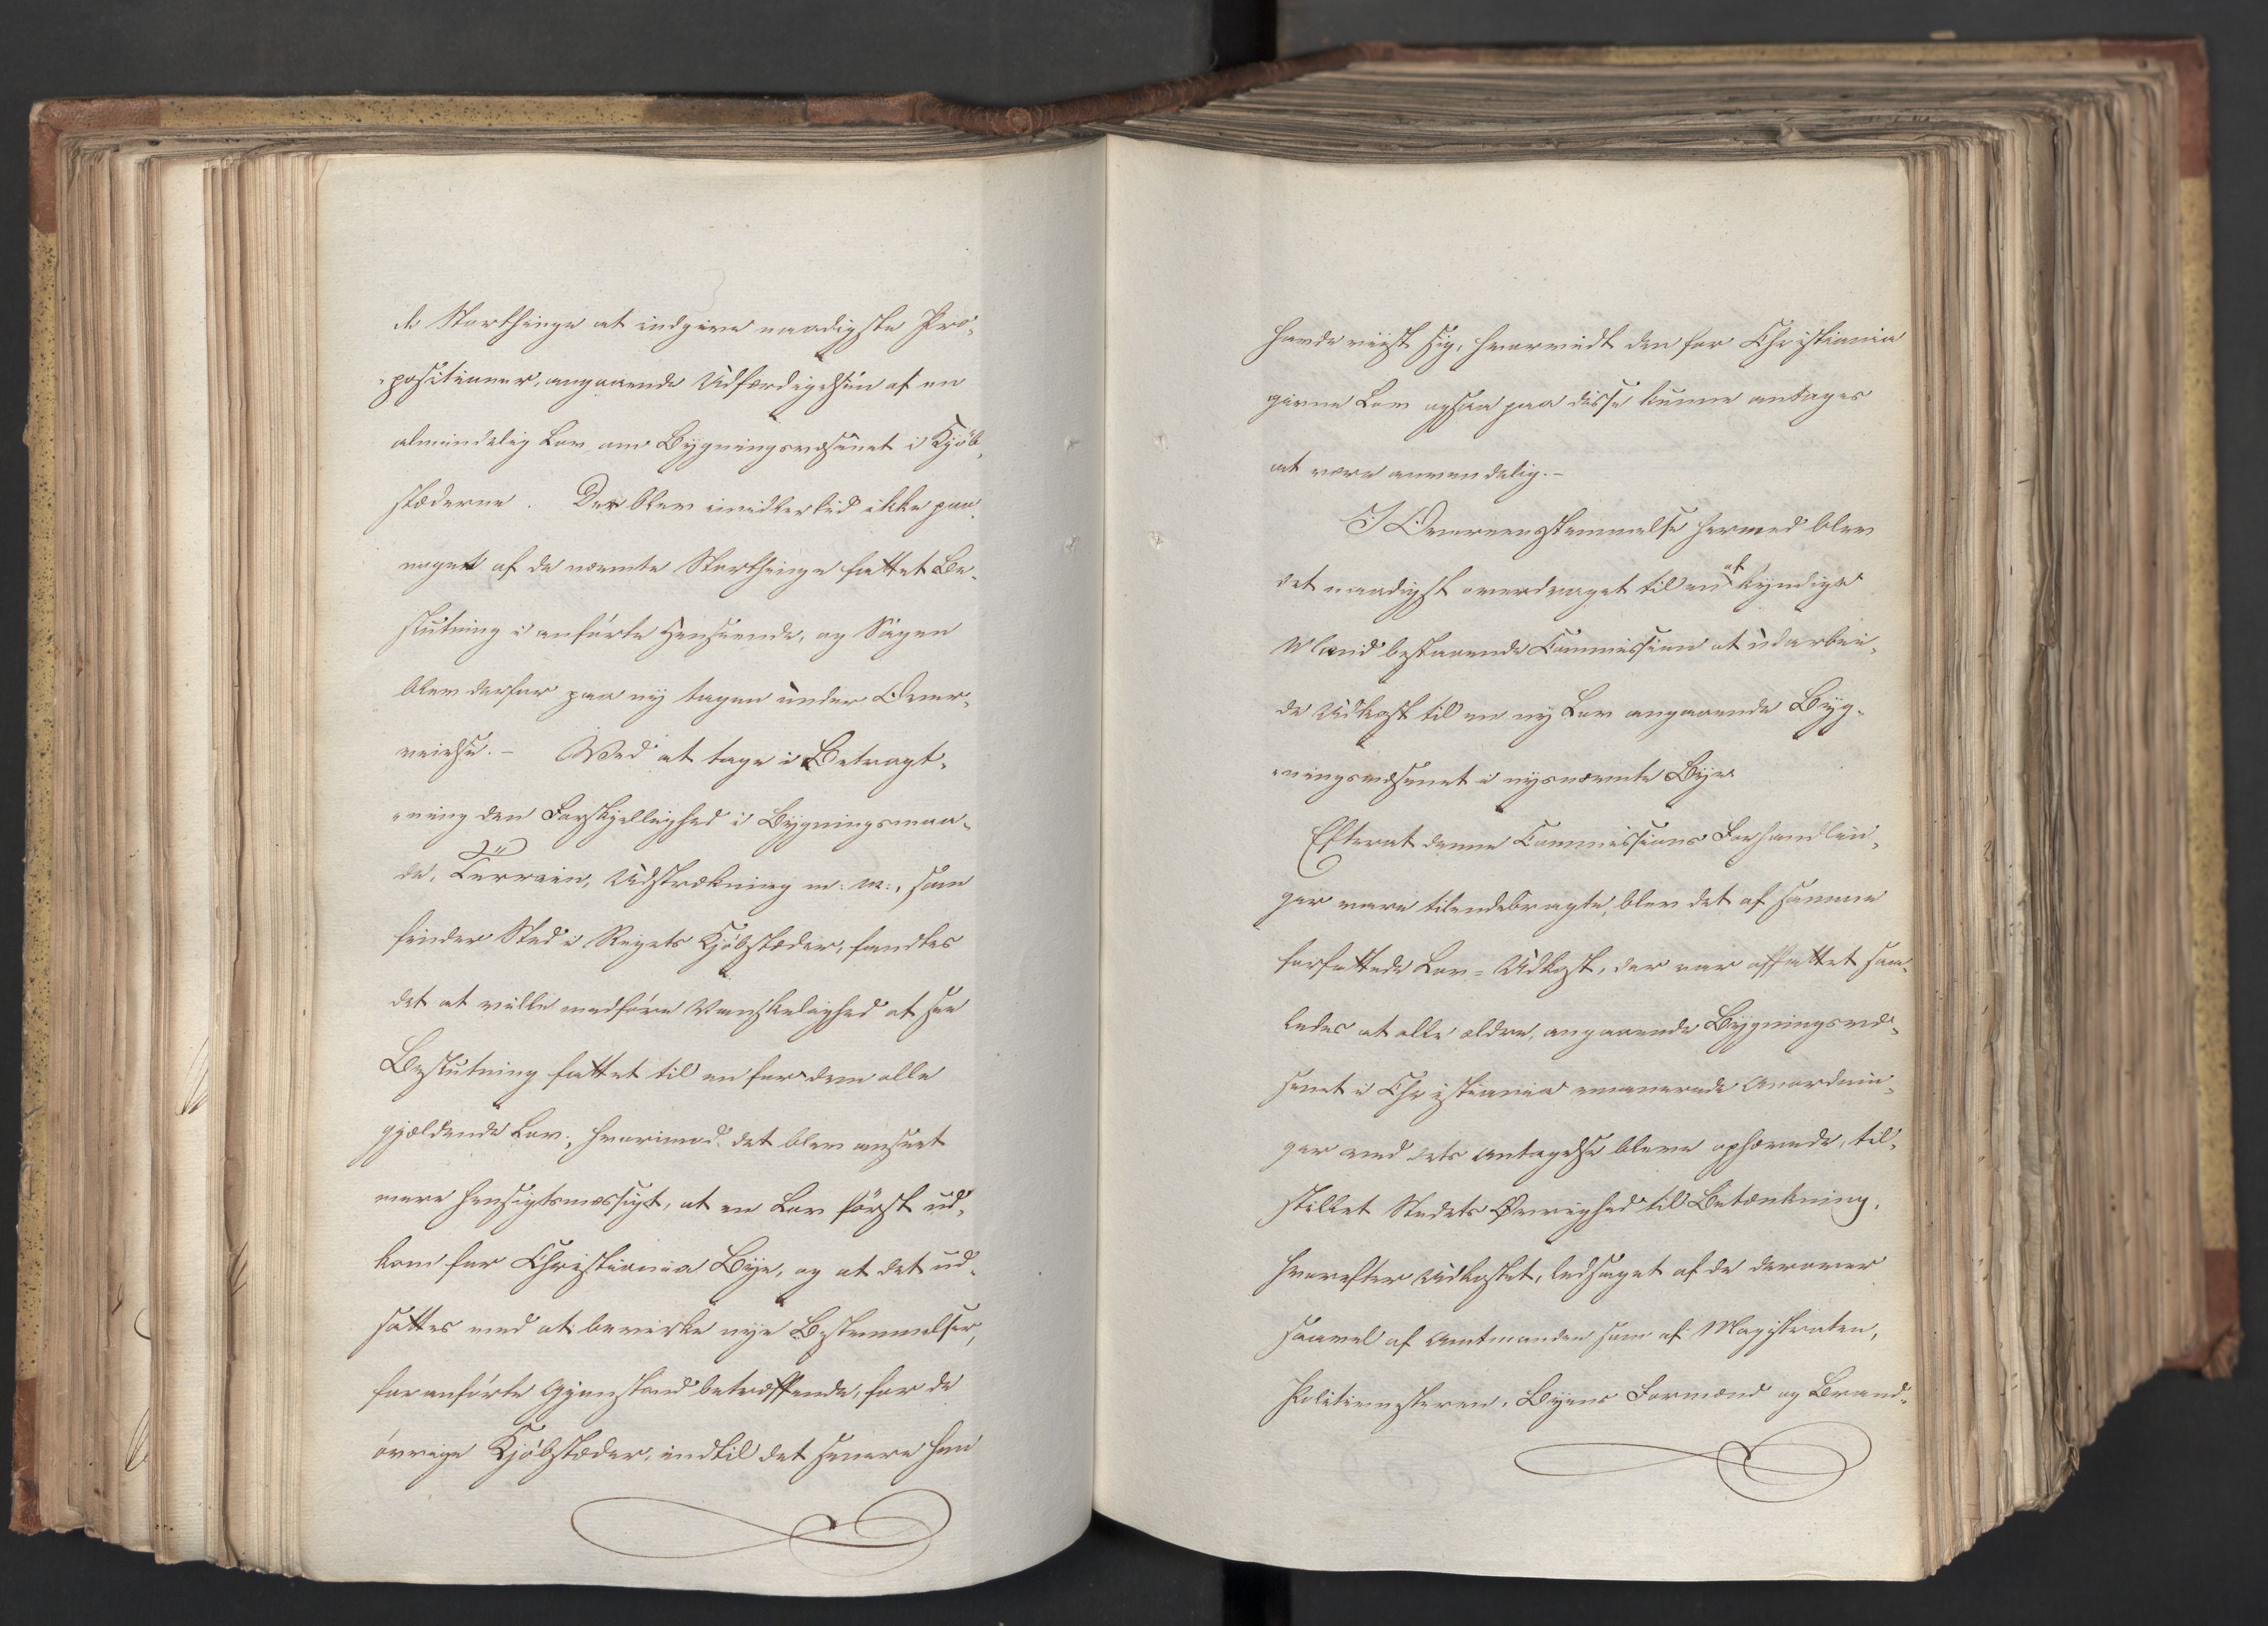 de Storthinge at indgive naadigste Pro-
-positioner, angaaende Udfærdigelsen af en
almindelig Lov om Bygningsvæsenet i Kjöb-
stæderne. Der blev imidlertid ikke paa
noget af de nævnte Storthinge fattet Be-
slutning i anförte Henseende, og Sagen
blev derfor paa ny tagen under Over-
veielse. — Ved at tage i Betragt-
-ning den Forskjellighed i Bygningsmaa-
de, Terrain, Udstrækning m: m:, som
finder Sted i Rigets Kjöbstæder, fandtes
det at ville medföre Vanskelighed at see
Beslutning fattet til en for dem alle
gjældende Lov; hvorimod det blev anseet
mere hensigtsmæssigt, at en Lov först ud-
kom for Christiania Bye, og at det ud-
sattes med at bevirke nye Bestemmelser,
foranförte Gjenstand betræffende, for de
övrige Kjöbstæder, indtil det senere hen
havde viist sig, hvorvidt den for Christiania
givne Lov ogsaa paa disse kunne antages
at være anvendelig. —
I Overeensstemmelse hermed blev
det naadigst overdraget til en af kyndige
Mænd bestaaende Commission at udarbei-
de Udkast til en ny Lov angaaende Byg-
-ningsvæsenet i nysnævnte Bye.
Efterat denne Commissions Forhandlin-
ger vare tilendebragte, blev det af samme
forfattede Lov-Udkast, der var affattet saa-
ledes at alle ældre, angaaende Bygningsvæ-
senet i Christiania emanerede Anordnin-
ger ved dets Antagelse bleve ophævede, til-
stillet Stedets Övrighed til Betænkning,
hvorefter Udkastet, ledsaget af de derover
saavel af Amtmanden som af Magistraten,
Politiemesteren, Byens Formænd og Brand-